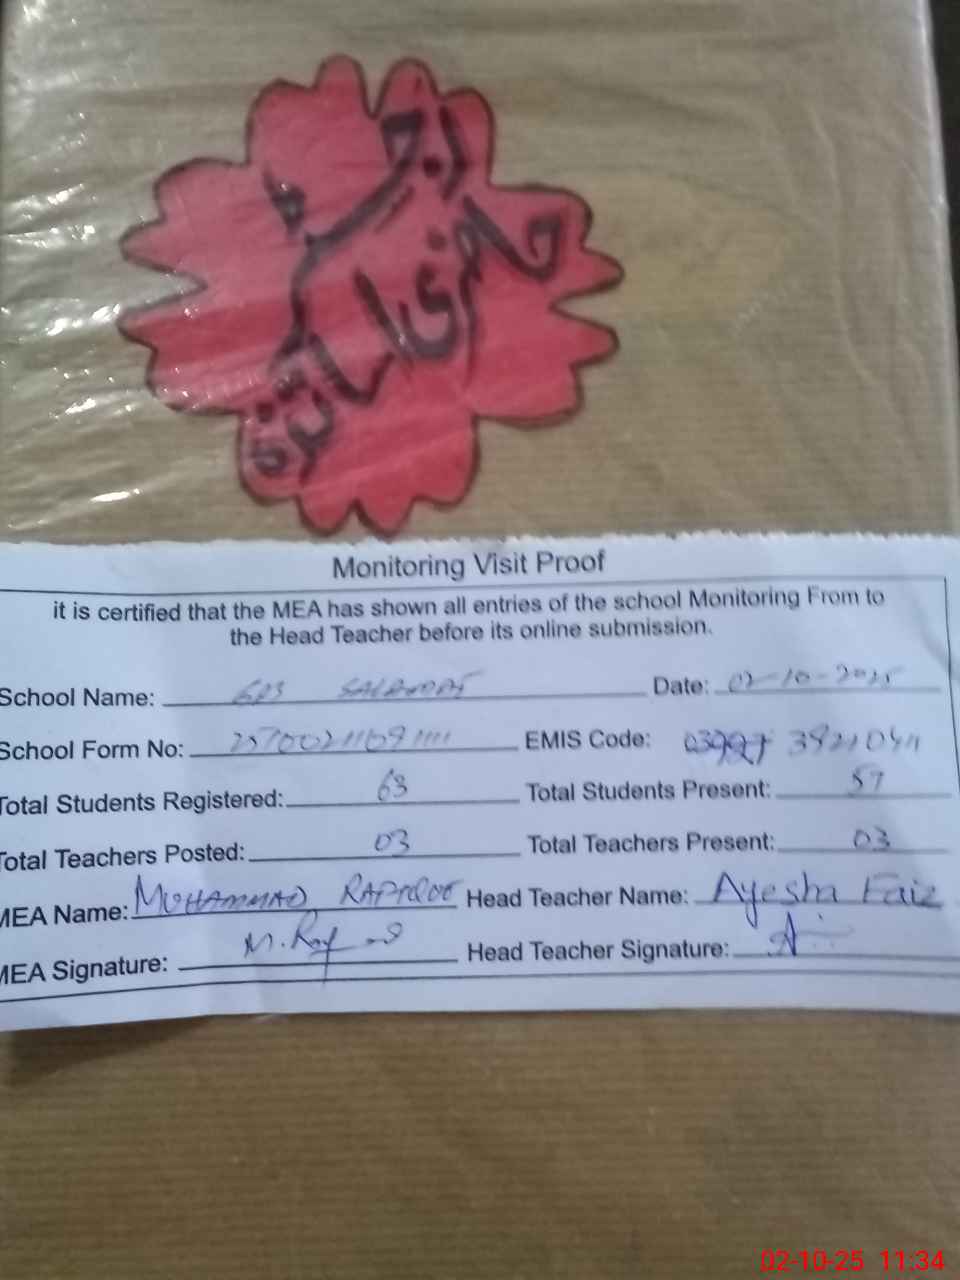 رجسٹر
حاضری اساتذہ
Monitoring Visit Proof
it is certified that the MEA has shown all entries of the school Monitoring From to
the Head Teacher before its online submission.
School Name: GPS Date: 02-10-2025
School Form No: EMIS Code:
Total Students Registered: 63 Total Students Present: 57
Total Teachers Posted: 03 Total Teachers Present: 03
MEA Name: MUHAMMAD RAFIQUE Head Teacher Name: Ayesha Faiz
MEA Signature: Head Teacher Signature:
02-10-25 11:34